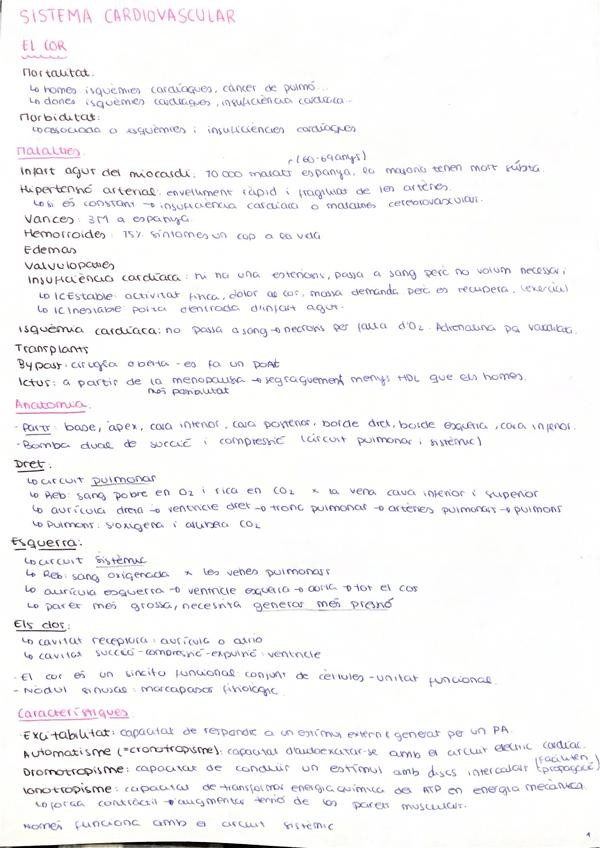 SISTEMA CARDIOVASCULAR
EL COR
Mortalitat:
↳ homes isquèmies cardíaques, càncer de pulmó...
↳ dones isquèmies cardíaques, insuficiència cardíaca...
Morbiditat:
↳ associada a isquèmies i insuficiències cardíaques
Malalties.
(60-69 anys)
Infart agut del miocardi: 70 000 malalts espanya, la majoria tenen mort súbita.
Hipertensió arterial: envelliment ràpid i fragilitat de les artèries.
↳ si és constant → insuficiència cardíaca o malalties cerebrovasculars.
Varices: 3M a espanya.
Hemorroides: 75% símtomes un cop a la vida
Edemas
Valvulopaties
Insuficiència cardíaca: hi ha una estenosis, passa a sang però no volum necessari
↳ IC Estable: activitat física, dolor al cor, massa demanda però es recupera. (exercici)
↳ IC Inestable: porta d'entrada d'infart agut.
Isquèmia cardíaca: no passa a sang → necrosis per falta d'O2. Adrenalina
Transplants
Bypass: cirugía oberta - es fa un pont
Ictus: a partir de la menopausia → segreguement menys HDL que els homes.
més possibilitat
Anatomia.
- Parts: base, apex, cara inferior, cara posterior, borde dret, borde esquerra, cara inferior.
- Bomba dual de succió i compressió (circuit pulmonar i sistèmic)
Dret:
↳ circuit pulmonar
↳ Reb: sang pobre en O2 i rica en CO2 x la vena cava inferior i superior
↳ aurícula dreta → ventricle dret → tronc pulmonar → artèries pulmonars → pulmons
↳ Pulmons: s'oxigena i allibera CO2
Esquerra:
↳ circuit sistèmic
↳ Reb: sang oxigenada x les venes pulmonars
↳ aurícula esquerra → ventricle esquerra → aorta → tot el cos
↳ paret més grossa, necesita generar més pressió
Els dos:
↳ cavitat receptora: aurícula o atrio
↳ cavitat succió-compressió-expulsió: ventricle
- El cor és un sincito funcional: conjunt de cèl·lules - unitat funcional.
- Nodul sinusal: marcapasos fisiològic.
Característiques
Excitabilitat: capacitat de respondre a un estímul extern generat per un PA.
Automatisme (=cronotropisme): capacitat d'autoexcitar-se amb el circuit elèctric cardíac.
Dromotropisme: capacitat de conduir un estímul amb discs intercalars (faciliten propagació)
Ionotropisme: capacitat de transformar energia química del ATP en energia mecànica.
↳ força contràctil → augmentar tensió de les parets musculars.
Només funciona amb el circuit sistèmic
1